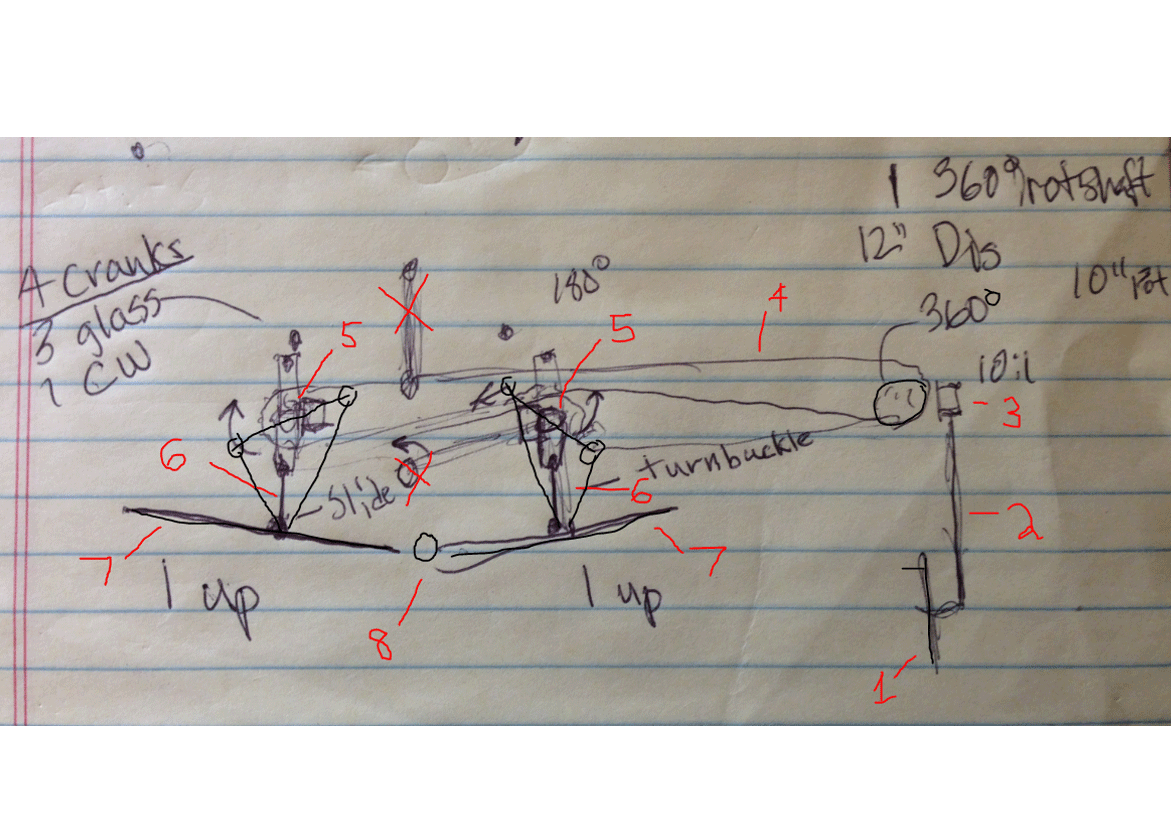 1 360°/rotshaft
12" Dis
10" rot
4 Cranks
3 glass
1 CW
180°
360°
4
5
5
10:1
3
6
slide
6
turnbuckle
2
7
7
1 up
1 up
8
1